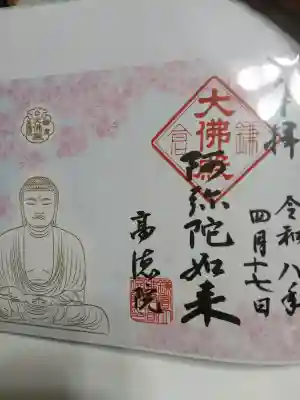 奉拝
令和八年
四月十七日
大佛殿
鎌倉
阿弥陀如来
高徳院